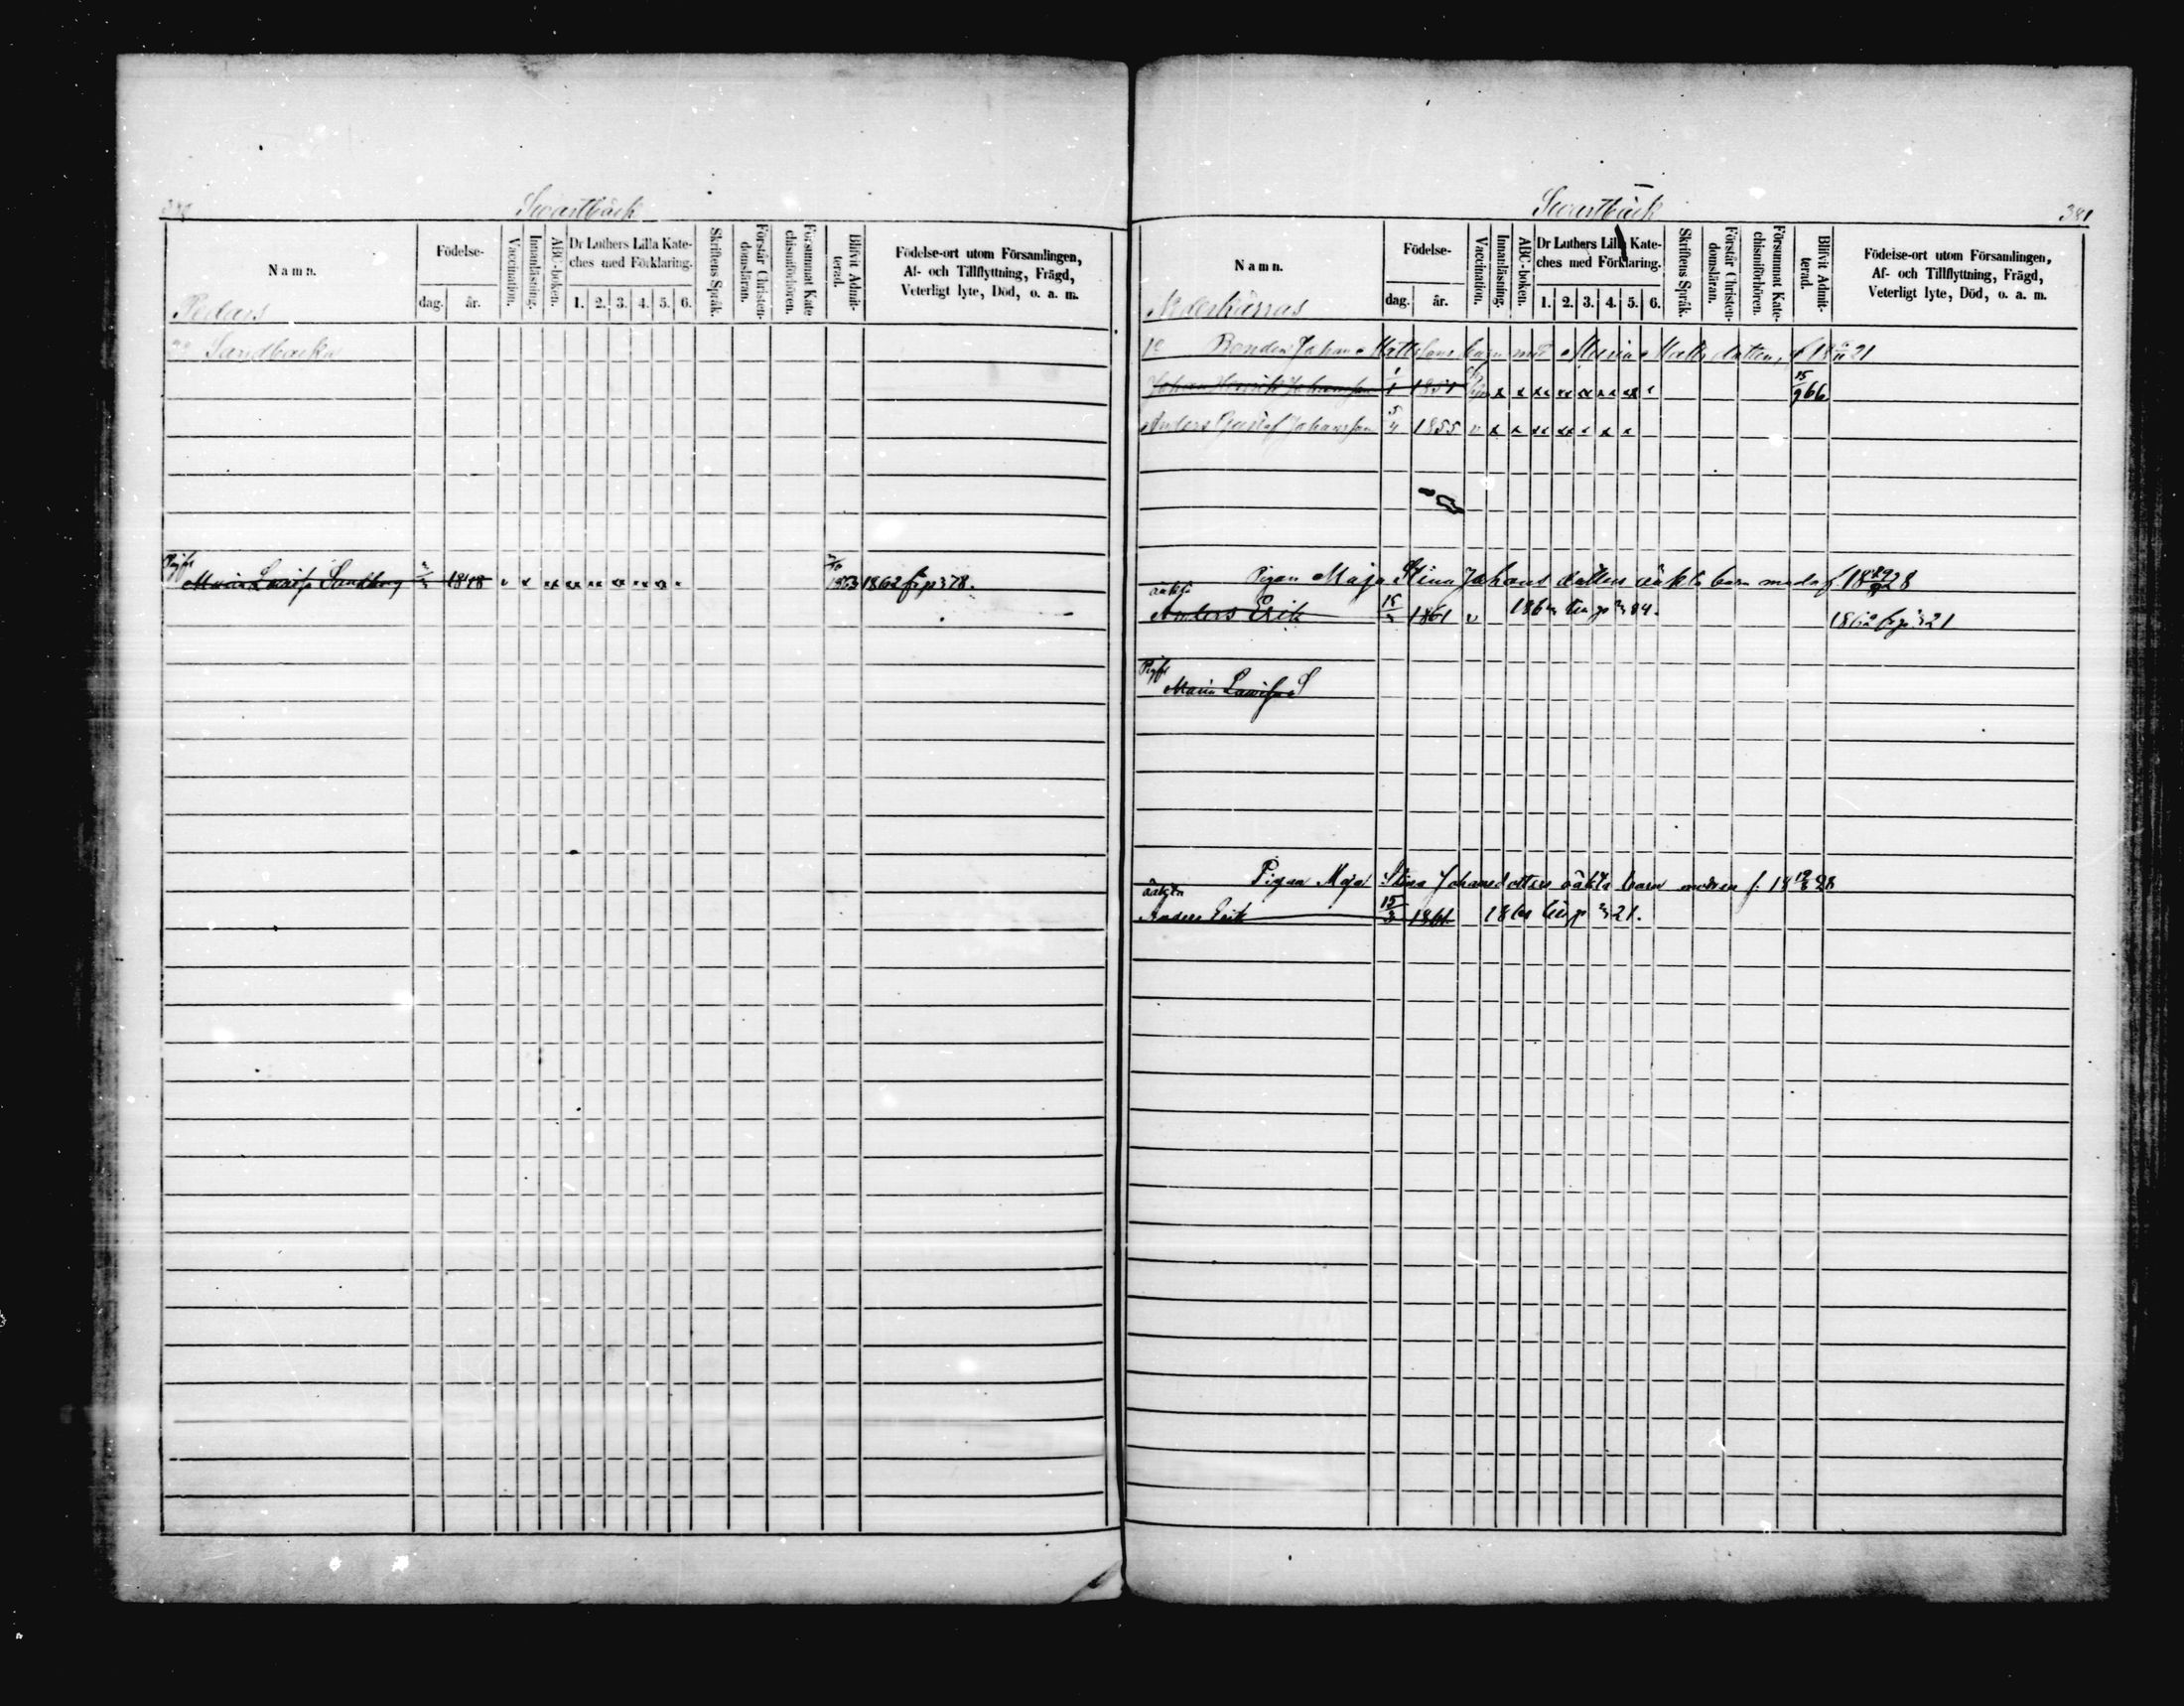 380
Svartbäck
Namn.
Födelse-
dag.
år.
Vaccination.
Innanläsning.
ABC-boken.
Dr Luthers Lilla Kate-
ches med Förklaring.
1. 2. 3. 4. 5. 6.
Skriftens Språk.
Förstår Christen-
domsläran.
Försummat Kate
chismiförhören.
Blifvit Admit-
terad.
Födelse-ort utom Församlingen,
Af- och Tillflyttning, Frägd,
Veterligt lyte, Död, o. a. m.
Pedars
Sandbacka
Pigfl
Maria Lovisa Sandberg 1848 v x x xx xx xx xx xx x 1863 1862 fr p 378.
Svartbäck
381
Namn.
Födelse-
dag.
år.
Vaccination.
Innanläsning.
ABC-boken.
Dr Luthers Lilla Kate-
ches med Förklaring.
1. 2. 3. 4. 5. 6.
Skriftens Språk.
Förstår Christen-
domsläran.
Försummat Kate-
chismiförhören.
Blifvit Admit-
terad.
Födelse-ort utom Församlingen,
Af- och Tillflyttning, Frägd,
Veterligt lyte, Död, o. a. m.
Bonden Johan Mattssons barn med Maria Matts dotter, f. 18 21
Johan Henrik Johansson 1851 x x xx xx xx xx xx 15/9 66
Anders Gustaf Johansson 5/4 1855 v x x xx xx x x x
Pigan Maja Stina Johans dotters oäkta barn modr f. 18 28
oäkta
Anders Erik 15/3 1861 v 1862 fr p 321
Pigfl
Maria Lovisa S
Pigan Maja Stina Johansdotters oäkta barn modren f. 18 28
oäkta
Anders Erik 15/3 1861 321.